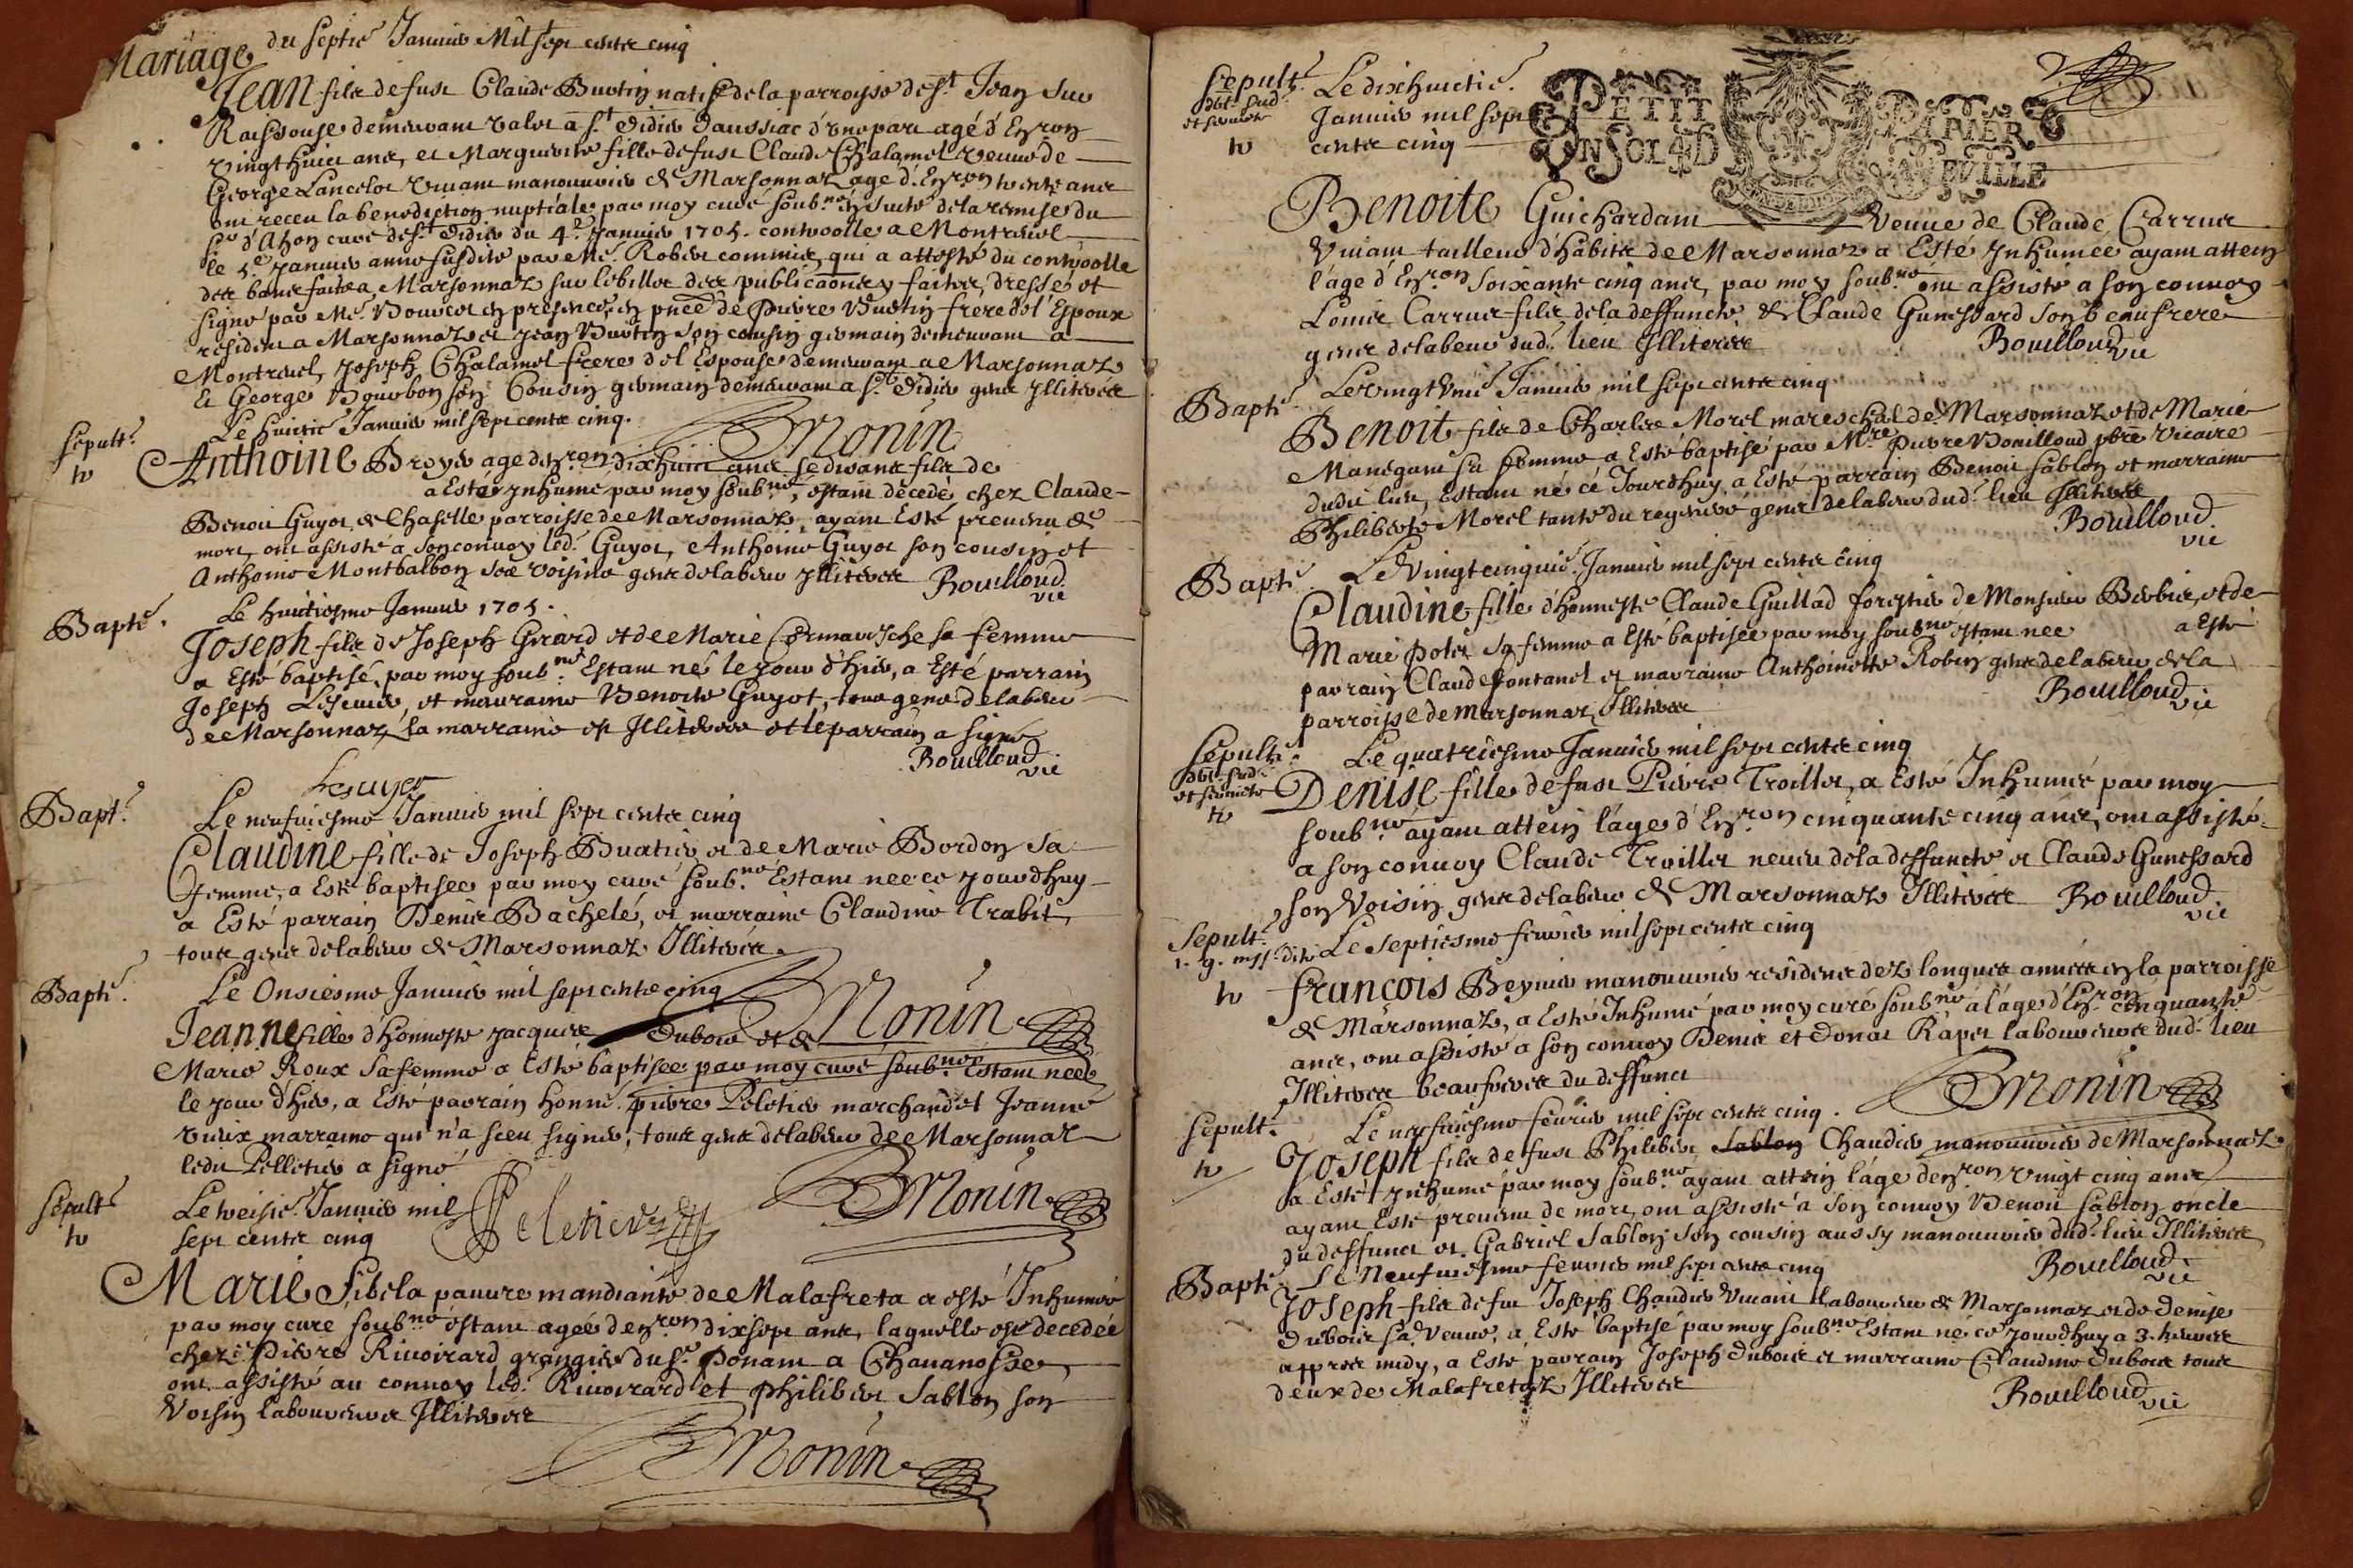 Mariage du septie Januier Mil sept cents cinq
Jean fils de fust Claude Buatin natif de la parroisse de St Jean sur
Raissouse demeurant valet a St Didier Daussiac d'vne part agé d'Enron
vingt huict ans, et Marguerite fille de fust Claude Chalamel veuue de
George Lancelot viuant manouurier de Marsonnaz age d'Enron trente ans
ont receu la benediction nuptiale par moy curé soubne en suite de la remise du
Sr d'Ahon curé de St Didier du 4e Januier 1705. controolle a Montreuel
le 5e Januier anne susdite par Me Robert commis, qui a attesté du controolle
des bans faits a Marsonnaz sur le billet des publicaons y faites, dresse et
signe par Me Bouuet en presence, en pnce de Pierre Buatin frere de l'Espoux
resident a Marsonnaz et Jean Buatin son cousin germain demeurant a
Montreuel, Joseph Chalamel frere de l'Espouse demeurant a Marsonnaz
Et George Bourbon son Cousin germain demeurant a St Didier gens Illiteres
Monin
Sepult. Le huictie Januier mil sept cents cinq.
tr Anthoine Broyer age denron dixhuict ans se disant fils de
a Esté inhumé par moy soubne, estant décedé chez Claude-
Benoit Guyot de Chaselle parroisse de Marsonnaz, ayant Esté preuenu de
mort, ont assisté a son conuoy led. Guyot, Anthoine Guyot son cousin et
Anthoine Montbalbon ses voisins gens de labeur illiteres Bouilloud
vic
Bapte. Le huictiesme Januier 1705.
Joseph fils de Joseph Girard et de Marie Cormareche sa femme
a Esté baptisé, par moy soubne Estant né le jour d'hier, a Esté parrain
Joseph Lescuier, et marraine Benoite Guyot, tous gens de labeur
de Marsonnaz, la marraine est Illitere et le parrain a signé
Bouilloud
vic
Lescuyer
Bapt. Le neufuiesme Januier mil sept cents cinq
Claudine fille de Joseph Buatier et de Marie Bordon sa
femme, a Esté baptisee par moy curé soubne Estant nee ce jourdhuy
a Esté parrain Denis Bachelé, et marraine Claudine Trabit,
tous gens de labeur de Marsonnaz Illiteres.
Monin
Bapte. Le Onsiesme Januier mil sept cents cinq
Jeanne fille d'honneste Jacques Dubois et de
Marie Roux sa femme a Esté baptisee par moy curé soubne Estant nee
le jour d'hier, a Esté parrain honne. pierre Peletier marchand et Jeanne
vieux marraine qui n'a sceu signer, tous gens de labeur de Marsonnaz
ledit Pelletier a signé
Peletier
Monin
Sepulte Le treisie Januier mil
tr sept cents cinq
Marie Sibela pauure mandiante de Malafreta a esté Inhumée
par moy cure soubne estant agée denron dixsept ans, laquelle est decedée
chez Pierre Riuoirard grangier du Sr Donant a Chauanosse,
ont assisté au conuoy led. Riuoirard et Philibert Sablon son
Voisin laboureurs Illiteres
Monin
Sepulte. Le dixhuictie.
Januier mil sept
tr cents cinq
PETIT PAPIER
VN SOL 4 D FEVILLE
Benoite Guichardant Veuue de Claude Carrus
Viuant tailleur d'habits de Marsonnaz a Esté Inhumee ayant attein
l'age d'Enron soixante cinq ans, par moy soubne ont assisté a son conuoy
Louis Carrus fils de la deffuncte & Claude Gunessard son beaufrere
gens de labeur dud. lieu Illiteres Bouilloud
vic
Bapte. Le vingt vnie Januier mil sept cents cinq
Benoit fils de Charles Morel mareschal de Marsonnaz et de Marie
Manegant sa femme a Esté baptisé par Mre Pierre Bouilloud pbre Vicaire
dudit lieu, Estant né ce Jourdhuy, a Esté parrain Benoit Sablon et marraine
Philiberte Morel tante du regeneré gens de labeur dud. lieu Illiteres
Bouilloud
vic
Bapte Le Vingt cinquie. Januier mil sept cents cinq
Claudine fille d'honneste Claude Guillad forestier de Monsieur Berbis, et de
Marie Potet sa femme a Esté baptisee par moy soubne estant nee a Esté
parrain Claude Fontanel et marraine Anthoinette Robin gens de labeur de la
parroisse de Marsonnaz Illiteres
Bouilloud
vic
Sepulte. Le quatriesme Januier mil sept cents cinq
tr Denise fille de fust Pierre Troillet, a Esté Inhumée par moy
soubne ayant attein l'age d'Enron cinquante cinq ans, ont assisté
a son conuoy Claude Troillet neueu de la deffuncte et Claude Gunessard
son Voisin gens de labeur de Marsonnaz Illiteres Bouilloud
vic
Sepult. Le septiesme feurier mil sept cents cinq
tr François Beynier manouurier residens dez longues années en la parroisse
de Marsonnaz, a Esté Inhumé par moy curé soubne a l'age d'Enron cinquante
ans, ont assisté a son conuoy Denis et Donat Rapet laboureurs dud. lieu
Illiteres beaufreres du deffunct
Monin
Sepult. Le neufuiesme feurier mil sept cents cinq.
tr Joseph fils de fust Philibert Sablon Chaudier manouurier de Marsonnaz
a Esté Inhumé par moy soubne ayant attein l'age denron vingt cinq ans
ayant Esté preuenu de mort, ont assisté a son conuoy Benoit Sablon oncle
du deffunct et Gabriel Sablon son cousin aussy manouurier dud. lieu Illiteres
Bouilloud
vic
Bapte Le Neufuiesme feurier mil sept cents cinq
Joseph fils de fut Joseph Chaudier Viuant laboureur de Marsonnaz et de Denise
Dubois sa Veuue, a Esté baptisé par moy soubne Estant né ce jourdhuy a 3. heures
appres midy, a Esté parrain Joseph Dubois et marraine Claudine Dubois tous
deux de Malafretaz Illiteres
Bouilloud
vic